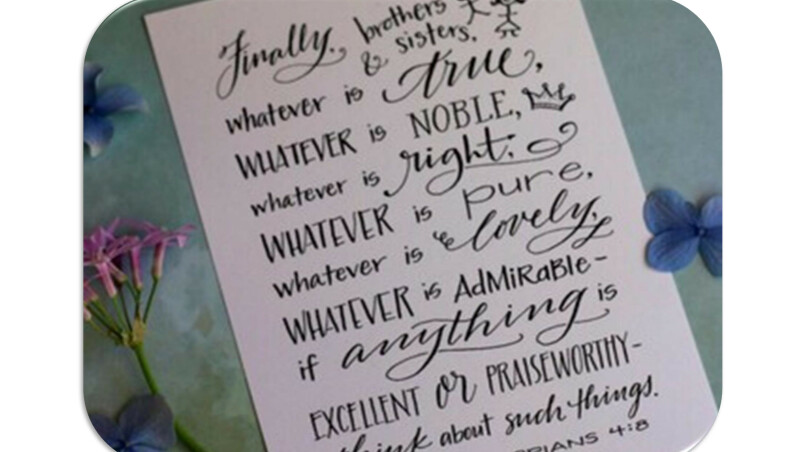 Finally, brothers
& sisters,
whatever is true,
WHATEVER is NOBLE,
whatever is right,
WHATEVER is pure,
whatever is lovely,
WHATEVER is AdMiRaBle-
if anything is
EXCELLENT or PRAISEWORTHY-
think about such things.
4:8